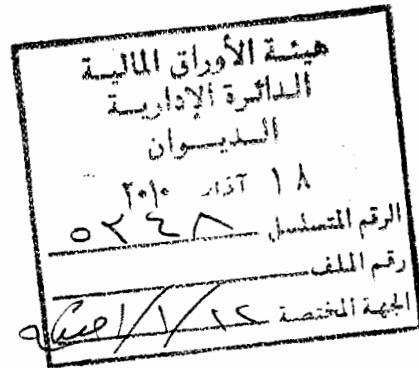 هيئة الأوراق المالية
الدائرة الإدارية
الديوان
١٨ آذار ٢٠١٠
الرقم المتسلسل ٥٢٤٨
رقم الملف
الجهة المختصة